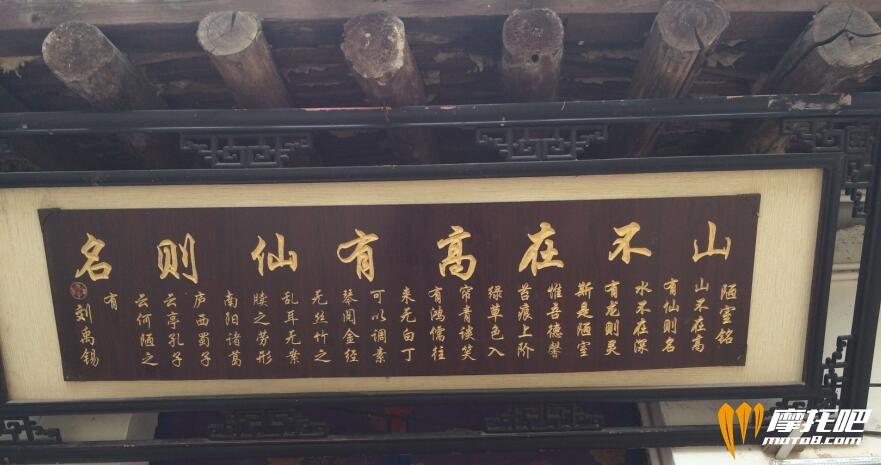 山不在高有仙则名
陋室铭
山不在高
有仙则名
水不在深
有龙则灵
斯是陋室
惟吾德馨
苔痕上阶
绿草色入
帘青谈笑
有鸿儒往
来无白丁
可以调素
琴阅金经
无丝竹之
乱耳无案
牍之劳形
南阳诸葛
庐西蜀子
云亭孔子
云何陋之
有
刘禹锡
摩托吧
moto8.com